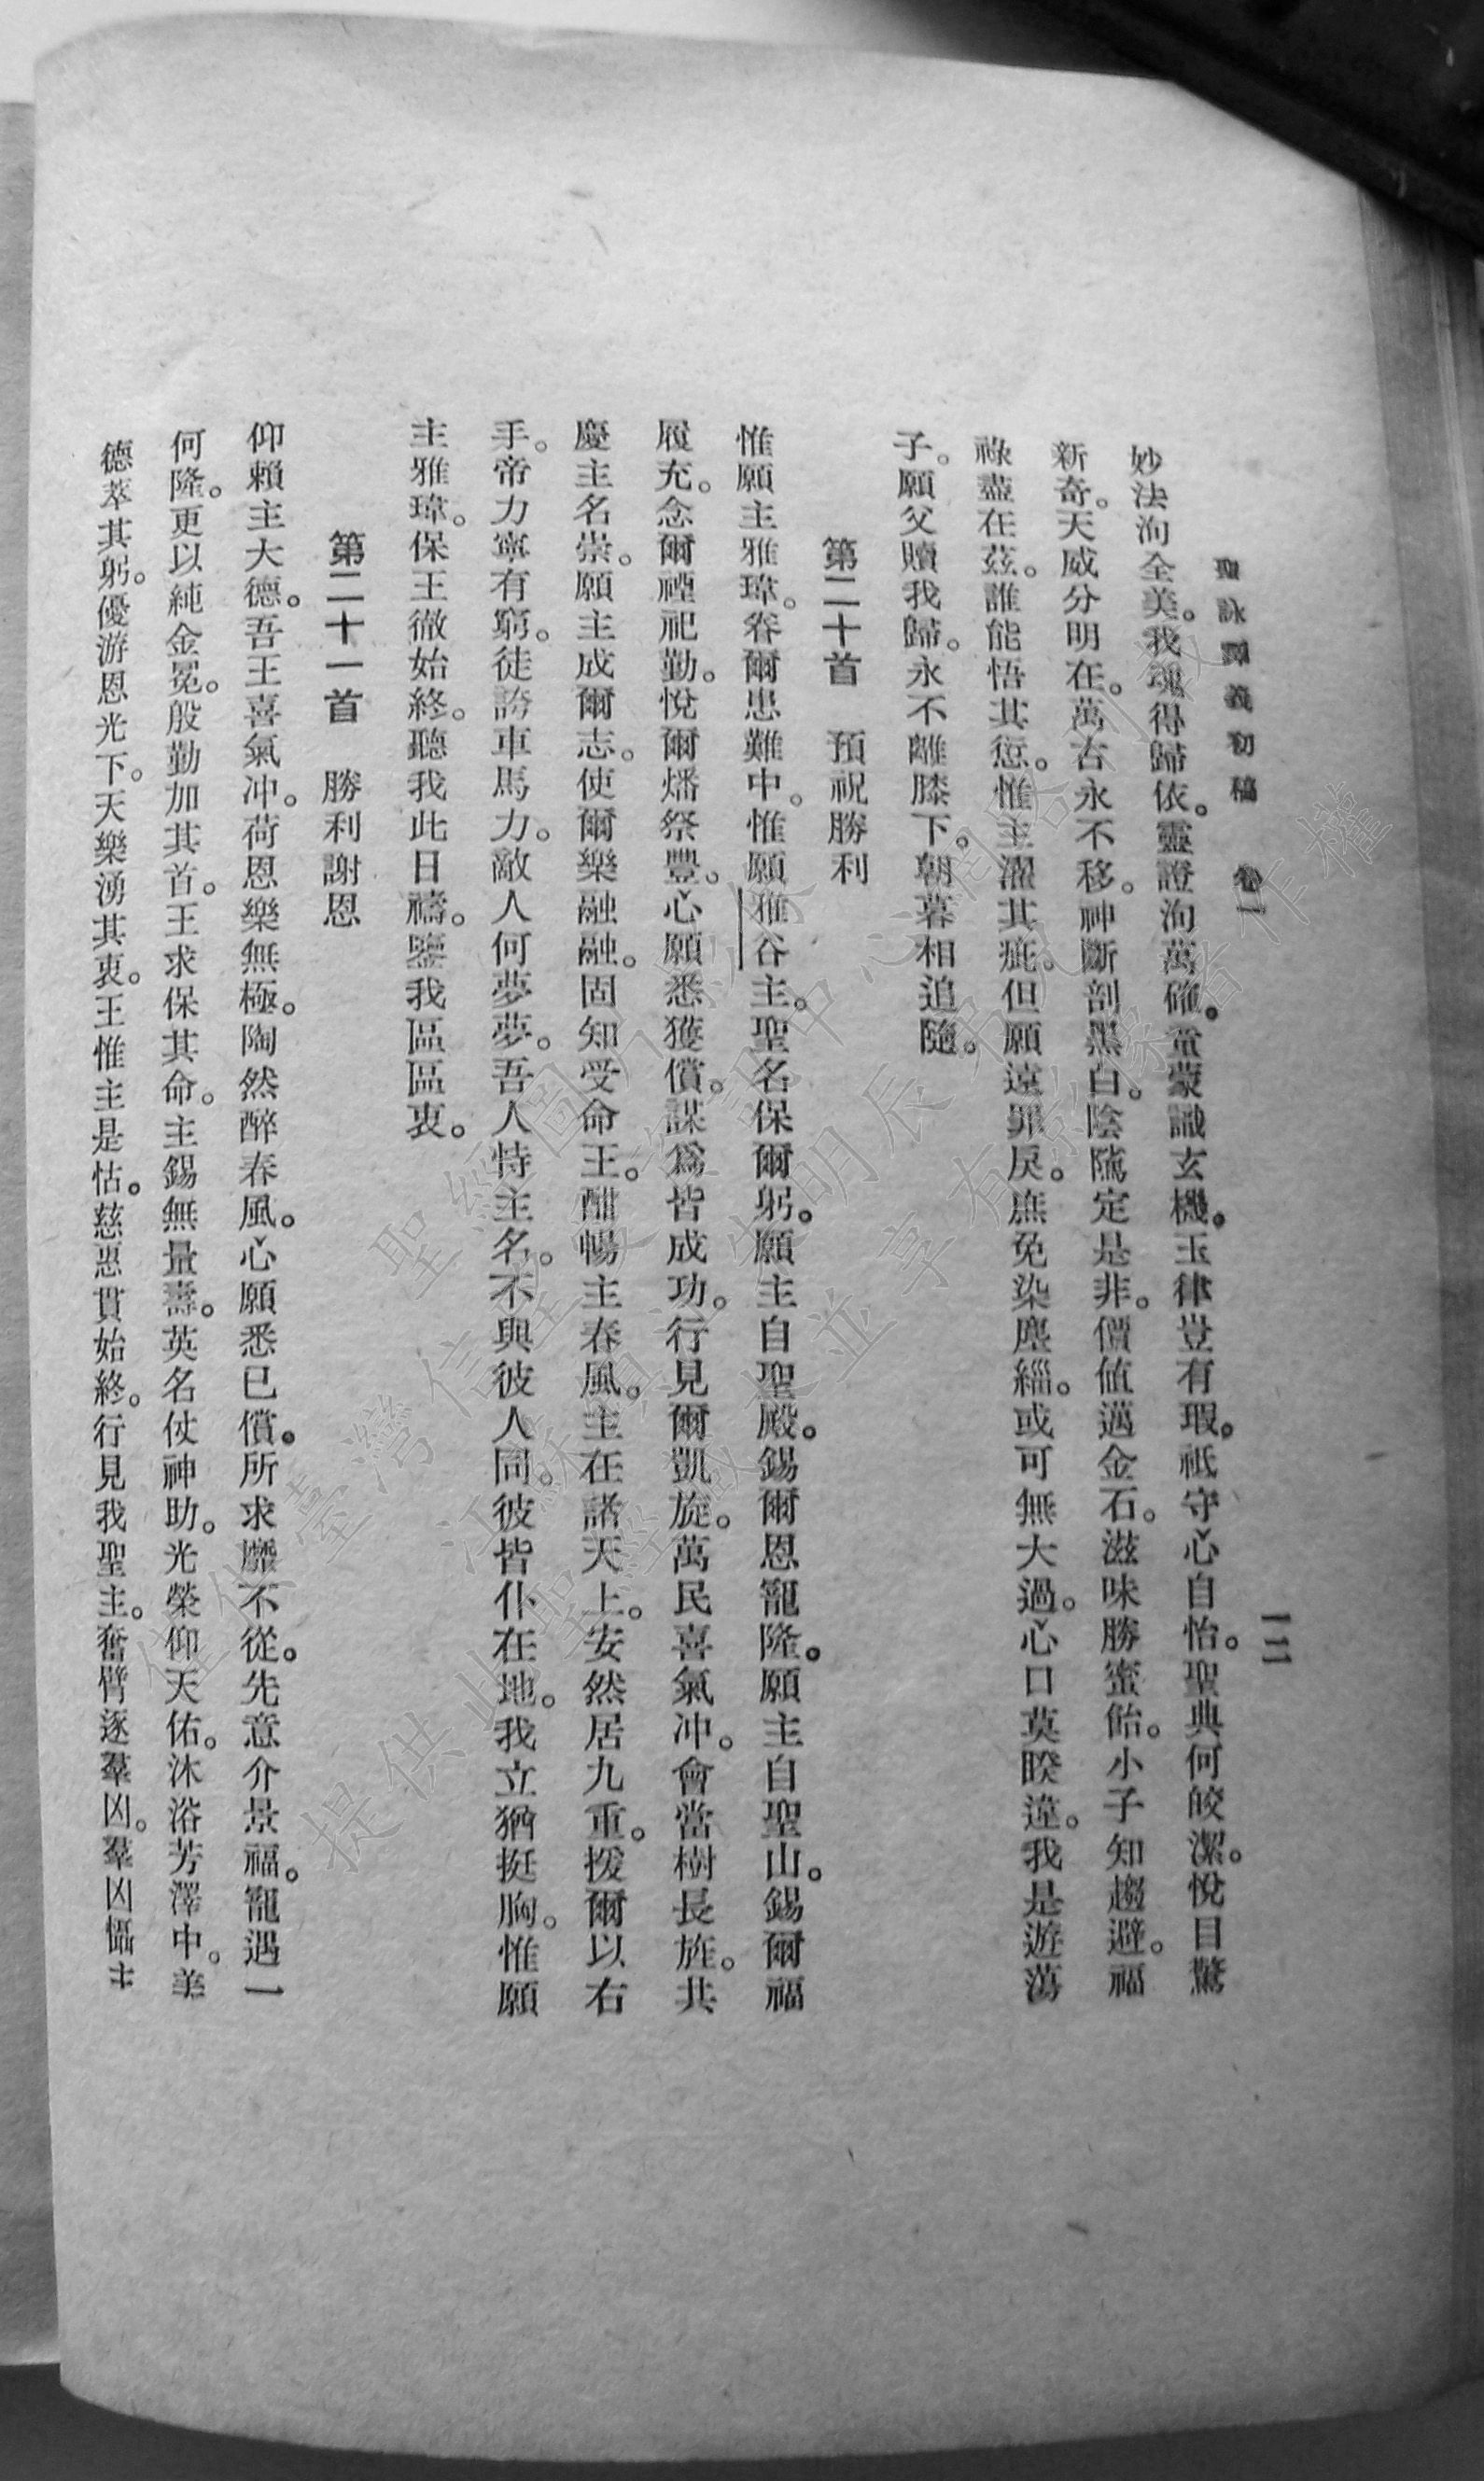 聖詠譯義初稿　卷一　一二
妙法洵全美。我魂得歸依。靈證洵萬確。童蒙識玄機。玉律豈有瑕。祗守心自怡。聖典何皎潔。悅目驚
新奇。天威分明在。萬古永不移。神斷剖黑白。陰隲定是非。價值邁金石。滋味勝蜜飴。小子知趨避。福
祿盡在茲。誰能悟其愆。惟主濯其疵。但願遠罪戾。庶免染塵緇。或可無大過。心口莫暌違。我是遊蕩
子。願父贖我歸。永不離膝下。朝暮相追隨。
第二十首　預祝勝利
惟願主雅瑋。眷爾患難中。惟願雅谷主。聖名保爾躬。願主自聖殿。錫爾恩寵隆。願主自聖山。錫爾福
履充。念爾禋祀勤。悅爾燔祭豐。心願悉獲償。謀為皆成功。行見爾凱旋。萬民喜氣冲。會當樹長旌。共
慶主名崇。願主成爾志。使爾樂融融。固知受命王。酣暢主春風。主在諸天上。安然居九重。援爾以右
手。帝力寧有窮。徒誇車馬力。敵人何夢夢。吾人恃主名。不與彼人同。彼皆仆在地。我立猶挺胸。惟願
主雅瑋。保王徹始終。聽我此日禱。鑒我區區衷。
第二十一首　勝利謝恩
仰賴主大德。吾王喜氣冲。荷恩樂無極。陶然醉春風。心願悉已償。所求靡不從。先意介景福。寵遇一
何隆。更以純金冕。殷勤加其首。王求保其命。主錫無量壽。英名仗神助。光榮仰天佑。沐浴芳澤中。美
德萃其躬。優游恩光下。天樂湧其衷。王惟主是怙。慈惠貫始終。行見我聖主。奮臂逐羣凶。羣凶懾主
聖經圖片提供
僅供臺灣信望愛資訊中心網路刊役